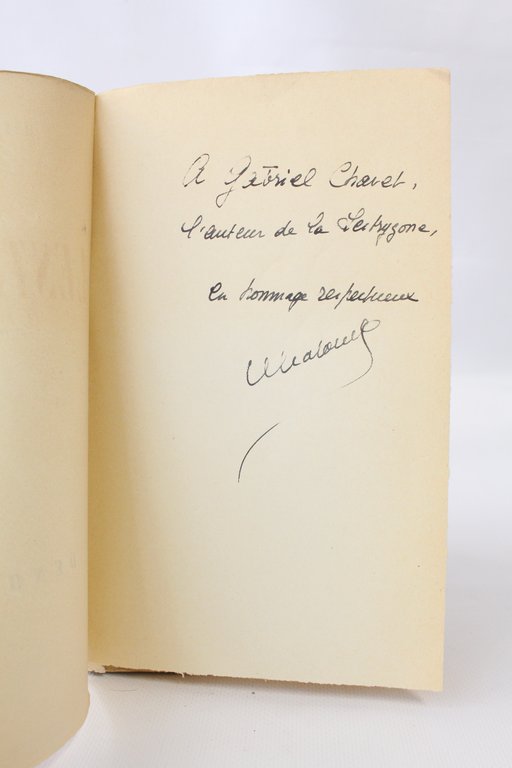 A Gabriel Chavet,
l'auteur de la Lestrygone,
en hommage respectueux